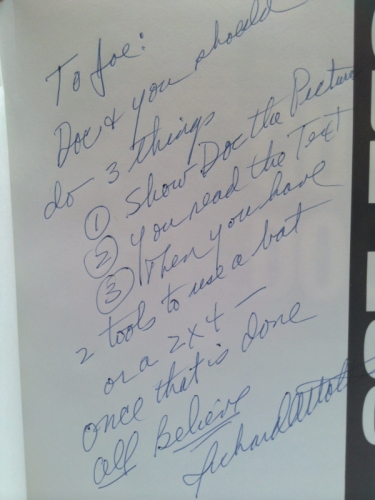 To Joe:
Doc & you should
do 3 things
① Show Doc the Picture
② You read the Text
③ Then you have
2 tools to use a bat
or a 2x4 —
once that is done
All Believe
Richard